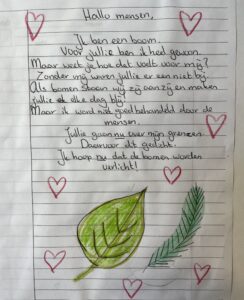 Hallo mensen,
Ik ben een boom.
Voor jullie ben ik heel gewoon.
Maar weet je hoe dat voelt voor mij?
Zonder mij waren jullie er een niet bij.
Als bomen staan wij zij aan zij en maken
jullie elke dag blij.
Maar ik word niet goed behandeld door de
mensen.
Jullie gaan nu over mijn grenzen.
Daarvoor dit gedicht.
Ik hoop nu dat de bomen worden
verlicht!